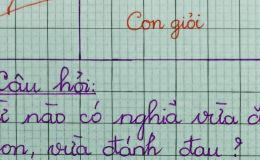 Con giỏi
Câu hỏi:
nào có nghĩa vừa
on, vừa đánh đau?